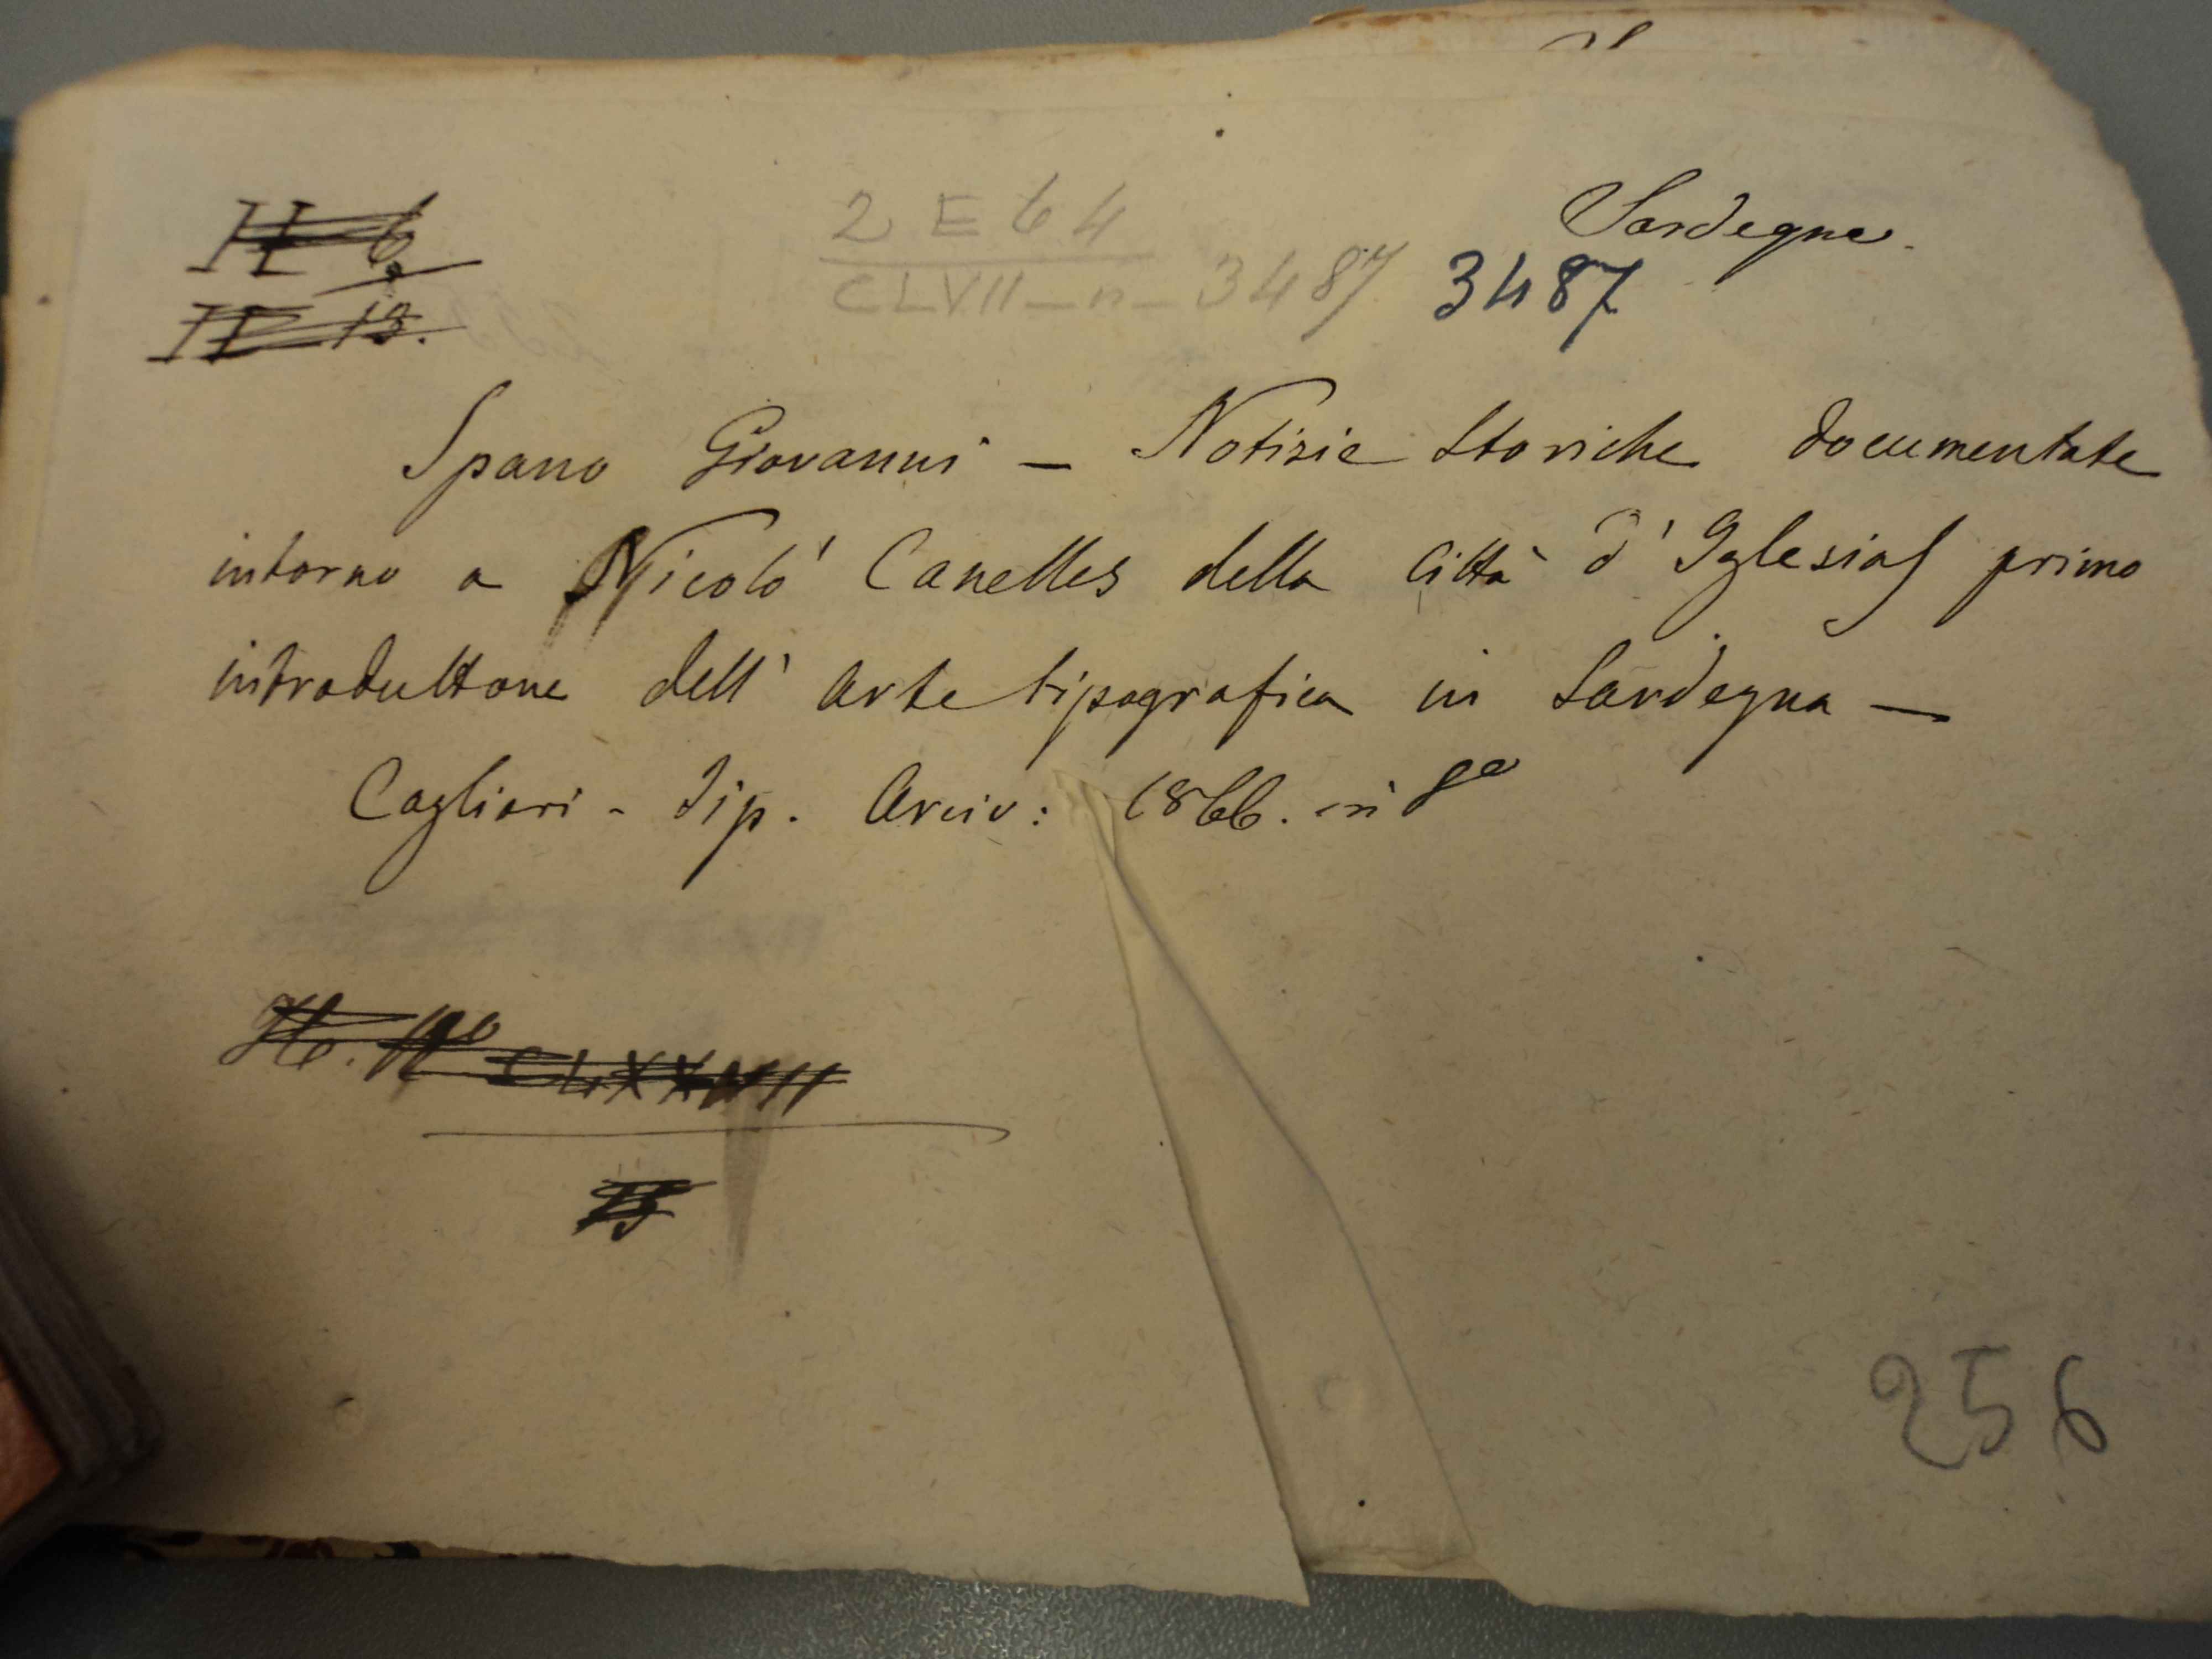 Sardegna.
2 E 64
CLVII - n - 3487 3487
II 6
II 13.
Spano Giovanni - Notizie Storiche documentate
intorno a Nicolò Canelles della Città d'Iglesias primo
introduttore dell'Arte tipografica in Sardegna -
Cagliari - Tip. Arciv: 1866. in 8°
CLXXVII
256